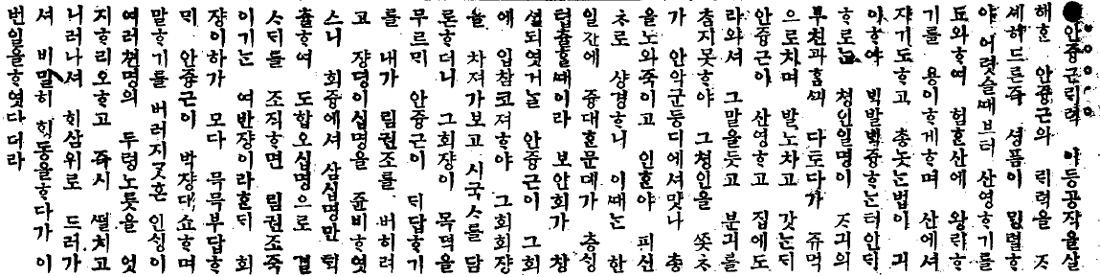 ●안중근리력 이등공작을살
해ᄒᆞᆫ 안중근의 리력을 ᄌᆞ
셰히드른즉 셩픔이 밍렬ᄒᆞ
야 어렷슬ᄯᅢ브터 산영ᄒᆞ기를
됴와ᄒᆞ여 험ᄒᆞᆫ산에 왕ᄅᆡᄒᆞ
기를 용이ᄒᆞ게ᄒᆞ며 산에셔
쟈기도ᄒᆞ고 총놋ᄂᆞᆫ법이 긔
이ᄒᆞ야 ᄇᆡᆨ발ᄇᆡᆨ즁ᄒᆞᄂᆞᆫ터인ᄃᆡ
ᄒᆞ로ᄂᆞᆫ 쳥인일명이 ᄌᆞ긔의
부친과홈ᄭᅴ 다토다가 쥬먹
으로치며 발노차고 갓ᄂᆞᆫᄃᆡ
안중근이 산영ᄒᆞ고 집에도
라와셔 그말을듯고 분긔를
춤지못ᄒᆞ야 그쳥인을 ᄶᅩᆺᄎᆞ
가 안악군등디에셔맛나 총
을노와죽이고 인ᄒᆞ야 피신
ᄎᆞ로 샹경ᄒᆞ니 이ᄯᅢᄂᆞᆫ 한
일간에 즁대ᄒᆞᆫ문뎨가 층싱
텹츌ᄒᆞᆯᄯᅢ이라 보안회가 창
셜되엿거ᄂᆞᆯ 안중근이 그회
에 입참코져ᄒᆞ야 그회회쟝
을 차져가보고 시국ᄉᆞ를 담
론ᄒᆞ더니 그회쟝이 목뎍을
무르ᄆᆡ 안중근이 ᄃᆡ답ᄒᆞ기
를 내가 림권조를 버히려
고 쟝뎡이십명을 쥰비ᄒᆞ엿
스니 회즁에셔 삼십명만 ᄐᆡᆨ
츌ᄒᆞ여 도합오십명으로 결
ᄉᆞᄃᆡ를 조직ᄒᆞ면 림권조죽
이기ᄂᆞᆫ 여반쟝이라ᄒᆞᆫᄃᆡ 회
쟝이하가 모다 묵묵부답ᄒᆞ
ᄆᆡ 안중근이 박쟝대쇼ᄒᆞ며
말ᄒᆞ기를 버러지ᄀᆞᆺᄒᆞᆫ 인싱이
여러쳔명의 두령노릇을 엇
지ᄒᆞ리오ᄒᆞ고 즉시 ᄯᅥᆯ치고
니러나셔 ᄒᆡ삼위로 드러가
셔 비밀히 ᄒᆡᆼ동을ᄒᆞ다가 이
번일을ᄒᆞ엿다더라